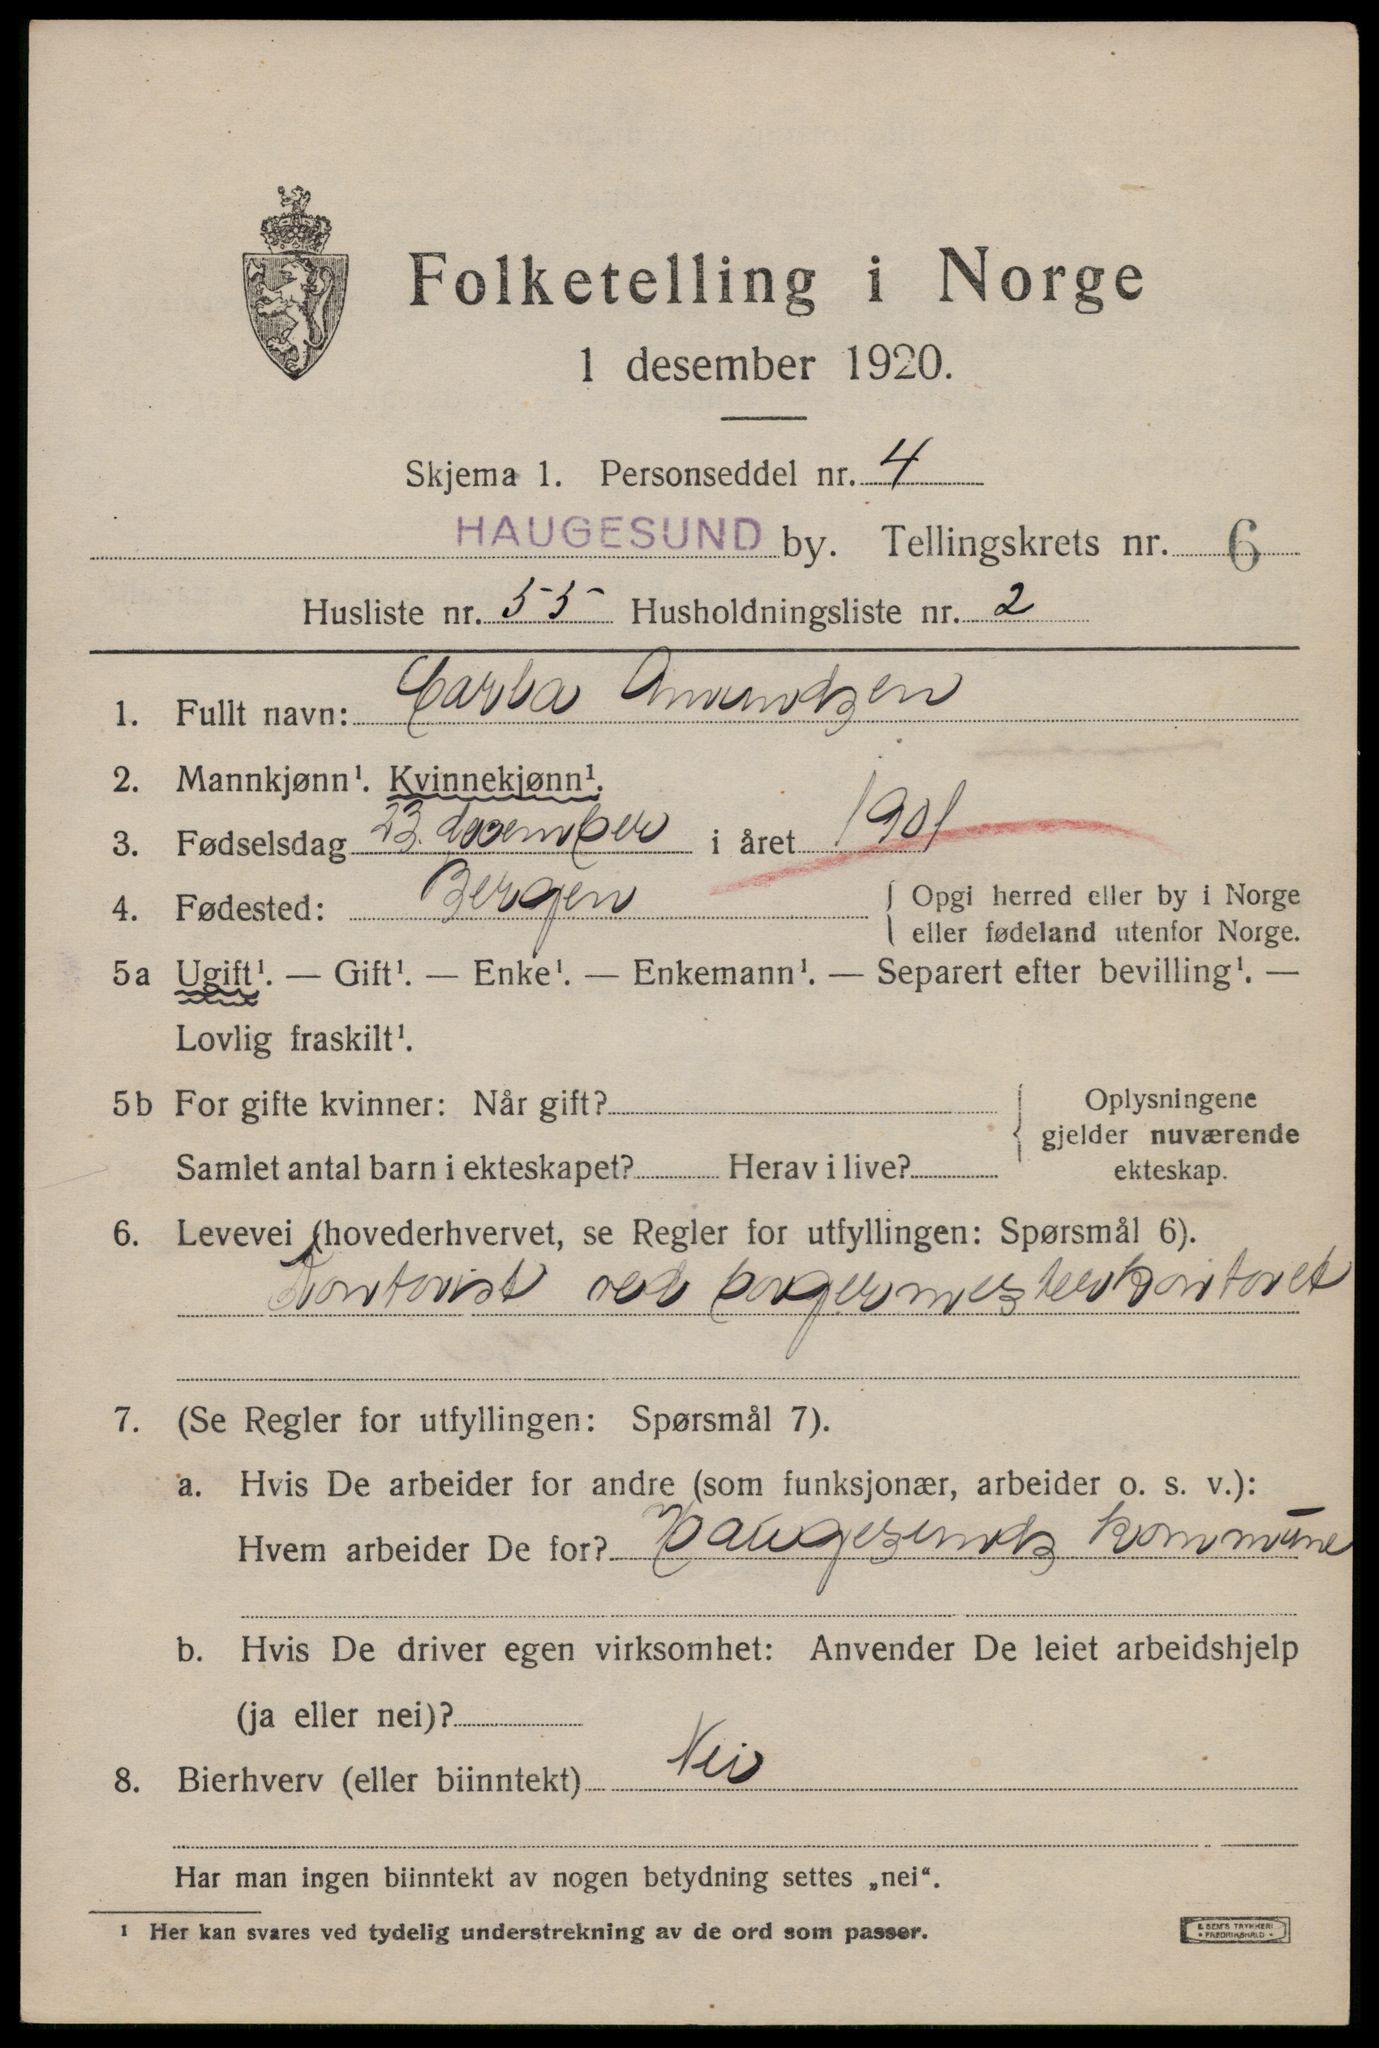 Folketelling i Norge
1 desember 1920.
Skjema 1. Personseddel nr. 4
HAUGESUND by. Tellingskrets nr. 6
Husliste nr. 55 Husholdningsliste nr. 2
1. Fullt navn: Carla Amundsen
2. Mannkjønn¹. Kvinnekjønn¹.
3. Fødselsdag 23. desember i året 1901
4. Fødested: Bergen { Opgi herred eller by i Norge
eller fødeland utenfor Norge.
5a Ugift¹. — Gift¹. — Enke¹. — Enkemann¹. — Separert efter bevilling¹. —
Lovlig fraskilt¹.
5b For gifte kvinner: Når gift? { Oplysningene
gjelder nuværende
Samlet antal barn i ekteskapet? Herav i live? ekteskap.
6. Levevei (hovederhvervet, se Regler for utfyllingen: Spørsmål 6).
Kontorist ved borgermesterkontoret
7. (Se Regler for utfyllingen: Spørsmål 7).
a. Hvis De arbeider for andre (som funksjonær, arbeider o. s. v.):
Hvem arbeider De for? Haugesunds kommune
b. Hvis De driver egen virksomhet: Anvender De leiet arbeidshjelp
(ja eller nei)?
8. Bierhverv (eller biinntekt) Nei
Har man ingen biinntekt av nogen betydning settes „nei“.
¹ Her kan svares ved tydelig understrekning av de ord som passer.
E. SEM'S TRYKKERI
• FREDRIKSHALD •